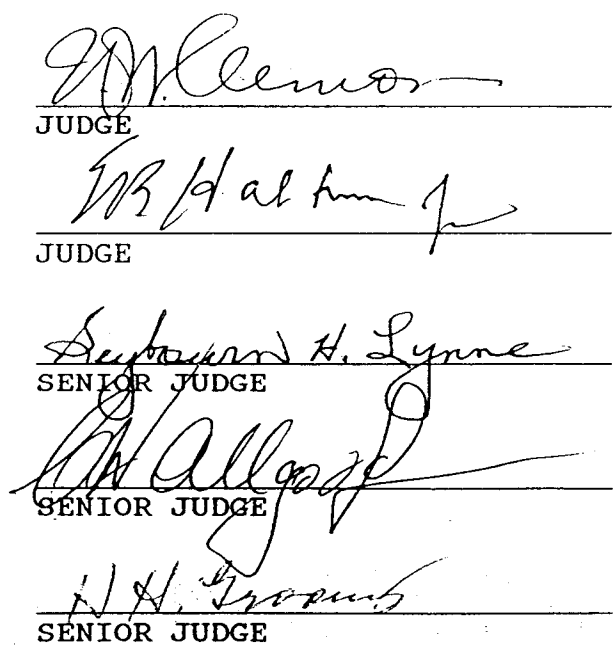 U.W. Clemon
JUDGE
JUDGE
Seybourn H. Lynne
SENIOR JUDGE
Allgood
SENIOR JUDGE
H. H. Grooms
SENIOR JUDGE